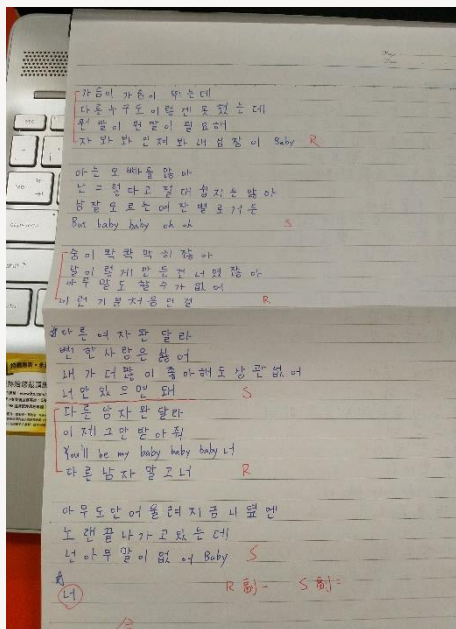 가슴이 가슴이 뛰는데
다른 누구도 이렇겐 못 했는데
왼발이 왼발이 필요해
자 와봐 만져봐 내 심장이 Baby R
아는 오빠들 많아
난 그렇다고 절대 쉽지는 않아
남 잘 모르는 여잔 별로거든
But baby baby oh oh S
숨이 콱콱 막히잖아
날 이렇게 만든 건 너였잖아
아무 말도 할 수가 없어
이런 기분 처음인 걸 R
다른 여자완 달라
뻔한 사랑은 싫어
내가 더 많이 좋아해도 상관없어
너만 있으면 돼 S
다른 남자완 달라
이제 그만 받아줘
You'll be my baby baby baby 너
다른 남자 말고 너 R
아무도 안 어울려 지금 니 옆엔
노랜 끝나가고 있는데
넌 아무 말이 없어 Baby S
너
R 副- S 副=